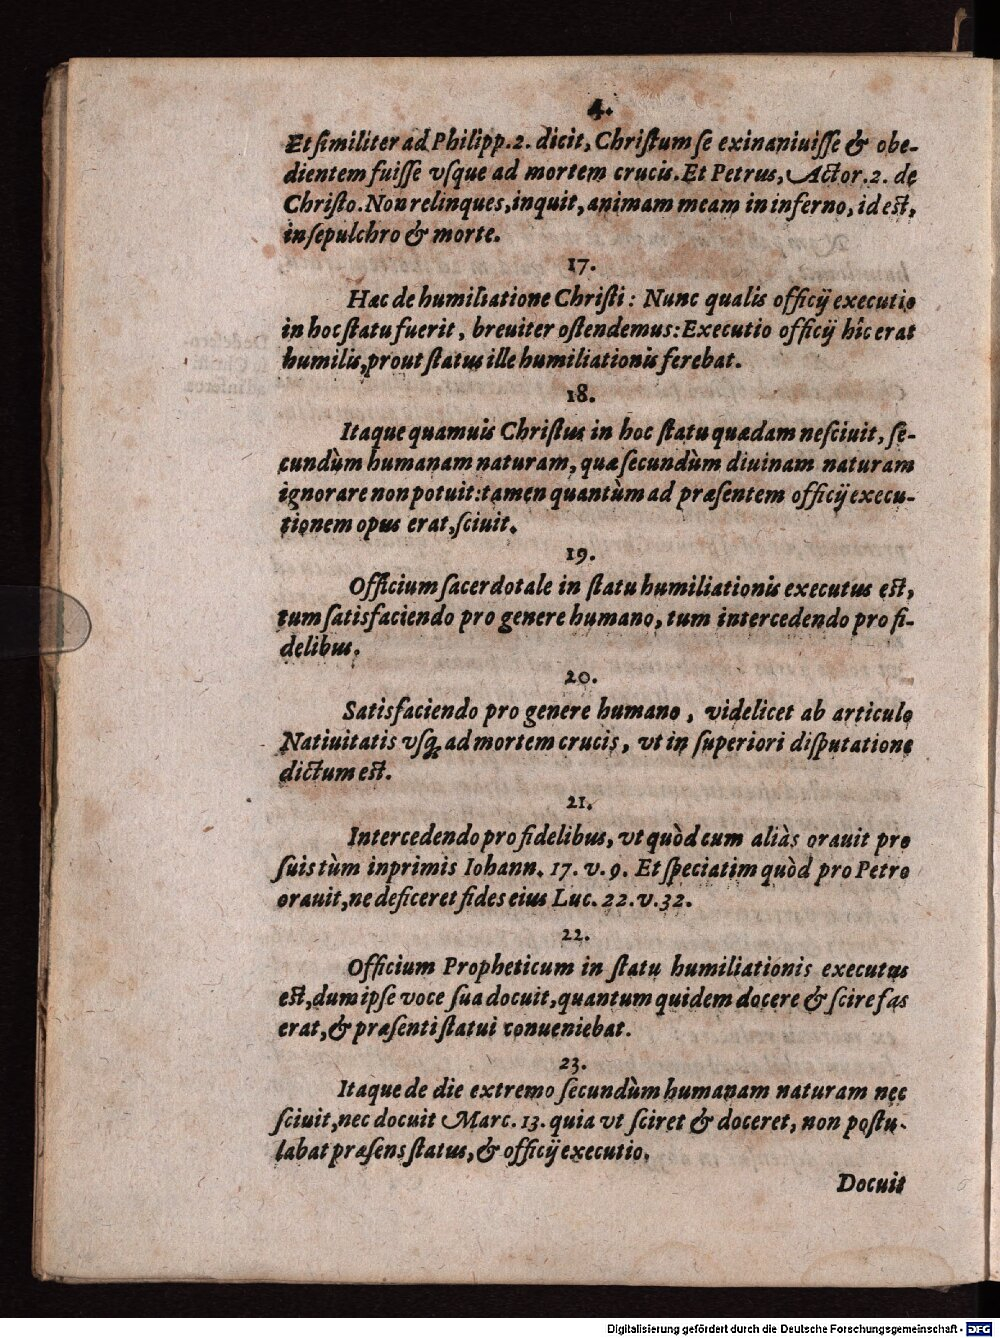 4.
Et ſimiliter ad Philipp. 2. dicit, Chriſtum ſe exinaniuiſſe & obe-
dientem fuiſſe vſque ad mortem crucis. Et Petrus, Actor. 2. de
Chriſto. Non relinques, inquit, animam meam in inferno, id eſt,
in ſepulchro & morte.
17.
Hæc de humiliatione Chriſti: Nunc qualis officij executio
in hoc ſtatu fuerit, breuiter oſtendemus: Executio officij hîc erat
humilis, prout ſtatus ille humiliationis ferebat.
18.
Itaque quamuis Chriſtus in hoc ſtatu quædam neſciuit, ſe-
cundùm humanam naturam, quæ ſecundùm diuinam naturam
ignorare non potuit: tamen quantùm ad præſentem officij execu-
tionem opus erat, ſciuit.
19.
Officium ſacerdotale in ſtatu humiliationis executus eſt,
tum ſatisfaciendo pro genere humano, tum intercedendo pro fi-
delibus.
20.
Satisfaciendo pro genere humano, videlicet ab articulo
Natiuitatis vſq́ue ad mortem crucis, vt in ſuperiori diſputatione
dictum eſt.
21.
Intercedendo pro fidelibus, vt quòd cum aliàs orauit pro
ſuis tùm inprimis Iohann. 17. v. 9. Et ſpeciatim quòd pro Petro
orauit, ne deficeret fides eius Luc. 22. v. 32.
22.
Officium Propheticum in ſtatu humiliationis executus
eſt, dum ipſe voce ſua docuit, quantum quidem docere & ſcire fas
erat, & præſenti ſtatui conueniebat.
23.
Itaque de die extremo ſecundùm humanam naturam nec
ſciuit, nec docuit Marc. 13. quia vt ſciret & doceret, non poſtu-
labat præſens ſtatus, & officij executio.
Docuit
Digitalisierung gefördert durch die Deutsche Forschungsgemeinschaft - DFG